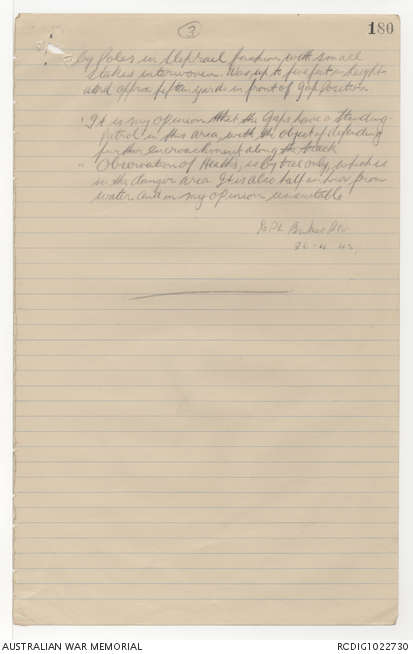 3
180
by Poles in slip rail fashion with small
stakes interwoven. Was up to five feet in height
and approx fifteen yards in front of Gap position
" It is my opinion that the Gaps have a Standing
Patrol in this area with the object of defending
further encroachment along the track
" Observation of Heaths, is by tree only, which is
in the danger area. It is also half an hour from
water and in my opinion unsuitable
26-4-43.
AUSTRALIAN WAR MEMORIAL
RCDIG1022730